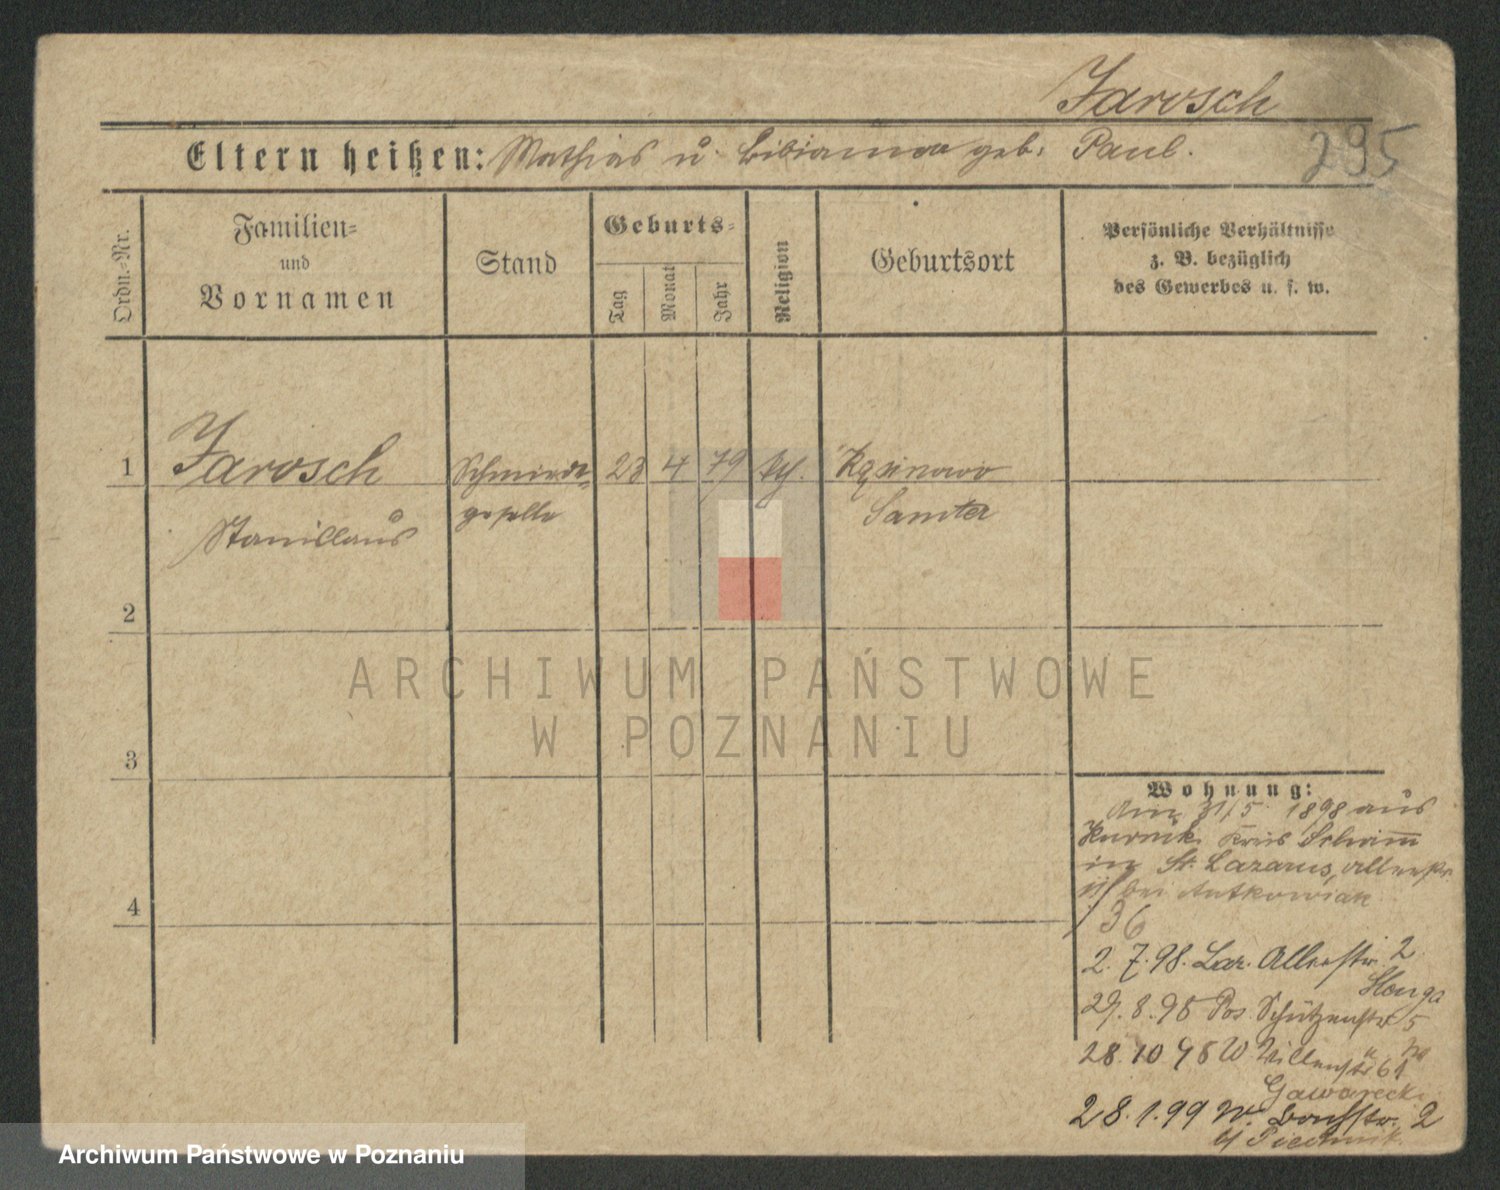 Jarosch
295
Eltern heißen: Mathias u. Bibianna geb. Paul.
Ordn.-Nr.
Familien-
und
Vornamen
Stand
Geburts-
Tag
Monat
Jahr
Religion
Geburtsort
Persönliche Verhältnisse
z. B. bezüglich
des Gewerbes u. s. w.
1
Jarosch
Schmiede-
23 4 79 kth.
Stanislaus
geselle
Samter
2
ARCHIWUM PAŃSTWOWE
W POZNANIU
3
Wohnung:
Am 31/5 1898 aus
Kurnik Kreis Schrimm
in St. Lazarus,
bei Antkowiak
36
4
2. 7. 98. Laz. 2
29. 8. 98 Pos. Schützenstr 5
28. 10 98 W 61
Gawarecki
28. 1. 99 W. 2
Archiwum Państwowe w Poznaniu